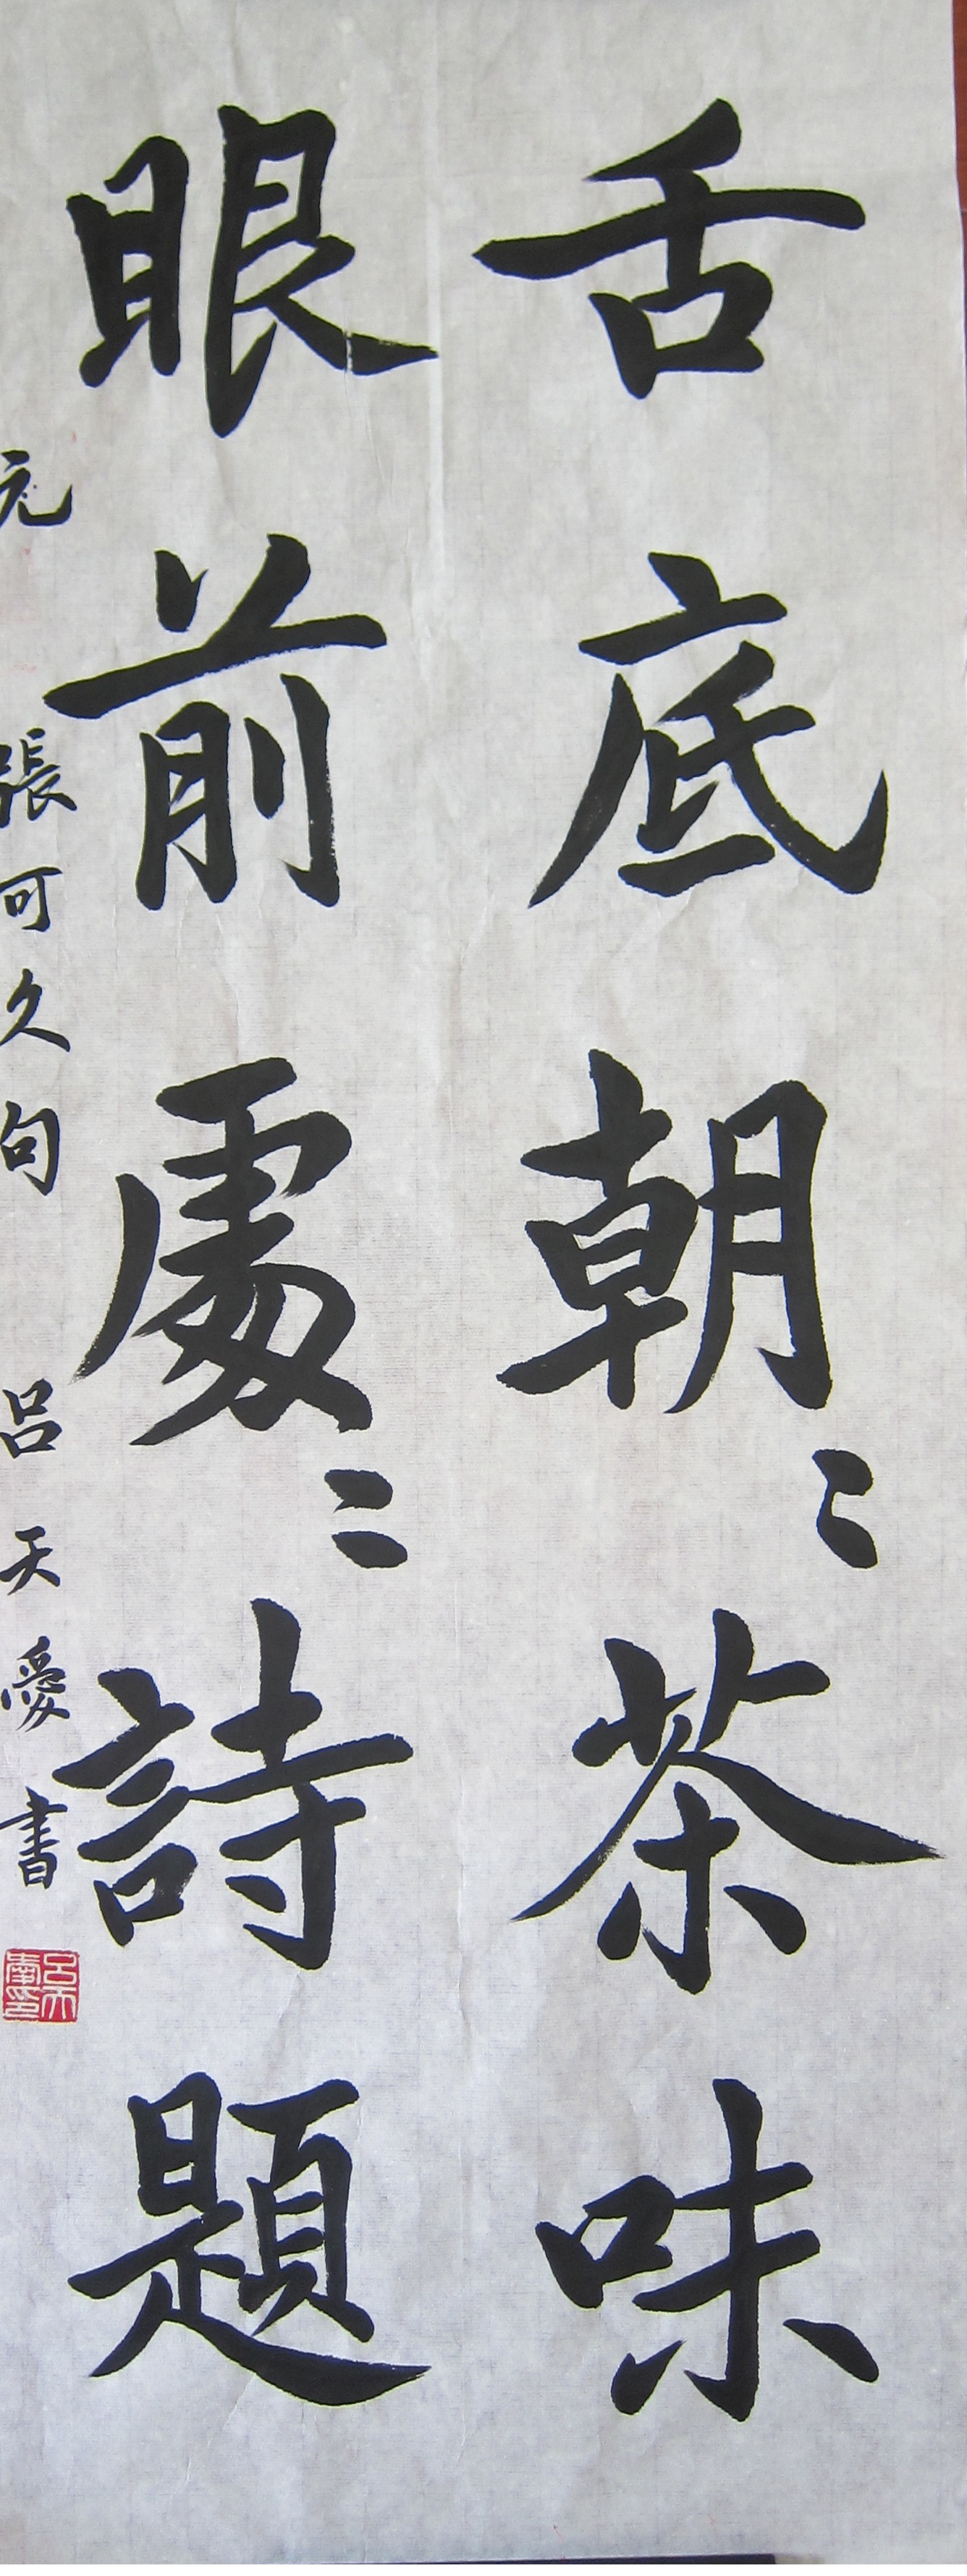 舌底朝〻茶味
眼前處〻詩題
元 張可久句 呂天愛書